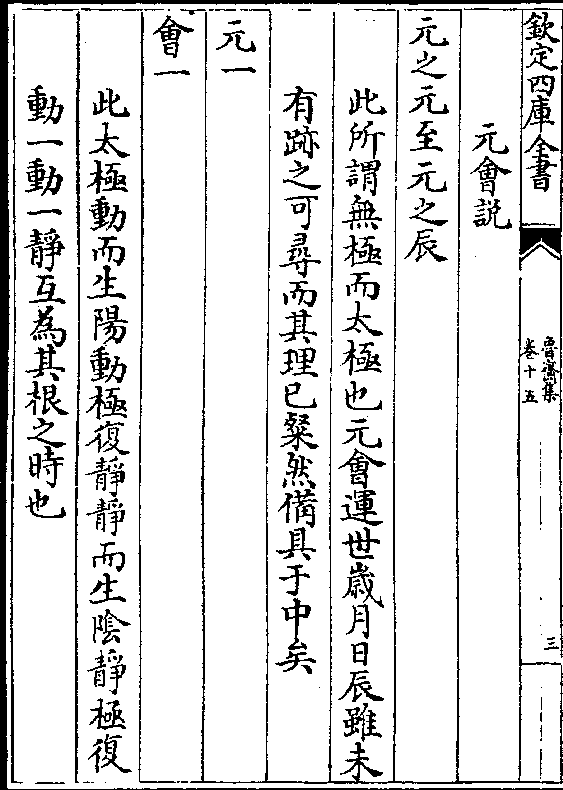 欽定四庫全書
魯齋集
卷十五
三
元會説
元之元至元之辰
此所謂無極而太極也元會運世歳月日辰雖未
有跡之可尋而其理已粲然備具于中矣
元一
會一
此太極動而生陽動極復靜靜而生陰靜極復
動一動一靜互為其根之時也